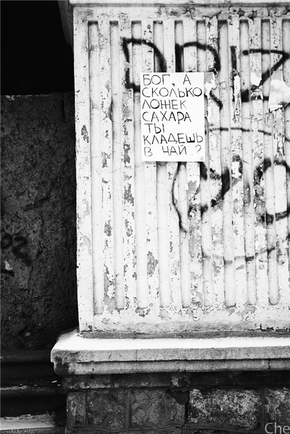 БОГ, А
СКОЛЬКО
ЛОЖЕК
САХАРА
ТЫ
КЛАДЕШЬ
В ЧАЙ ?
Che